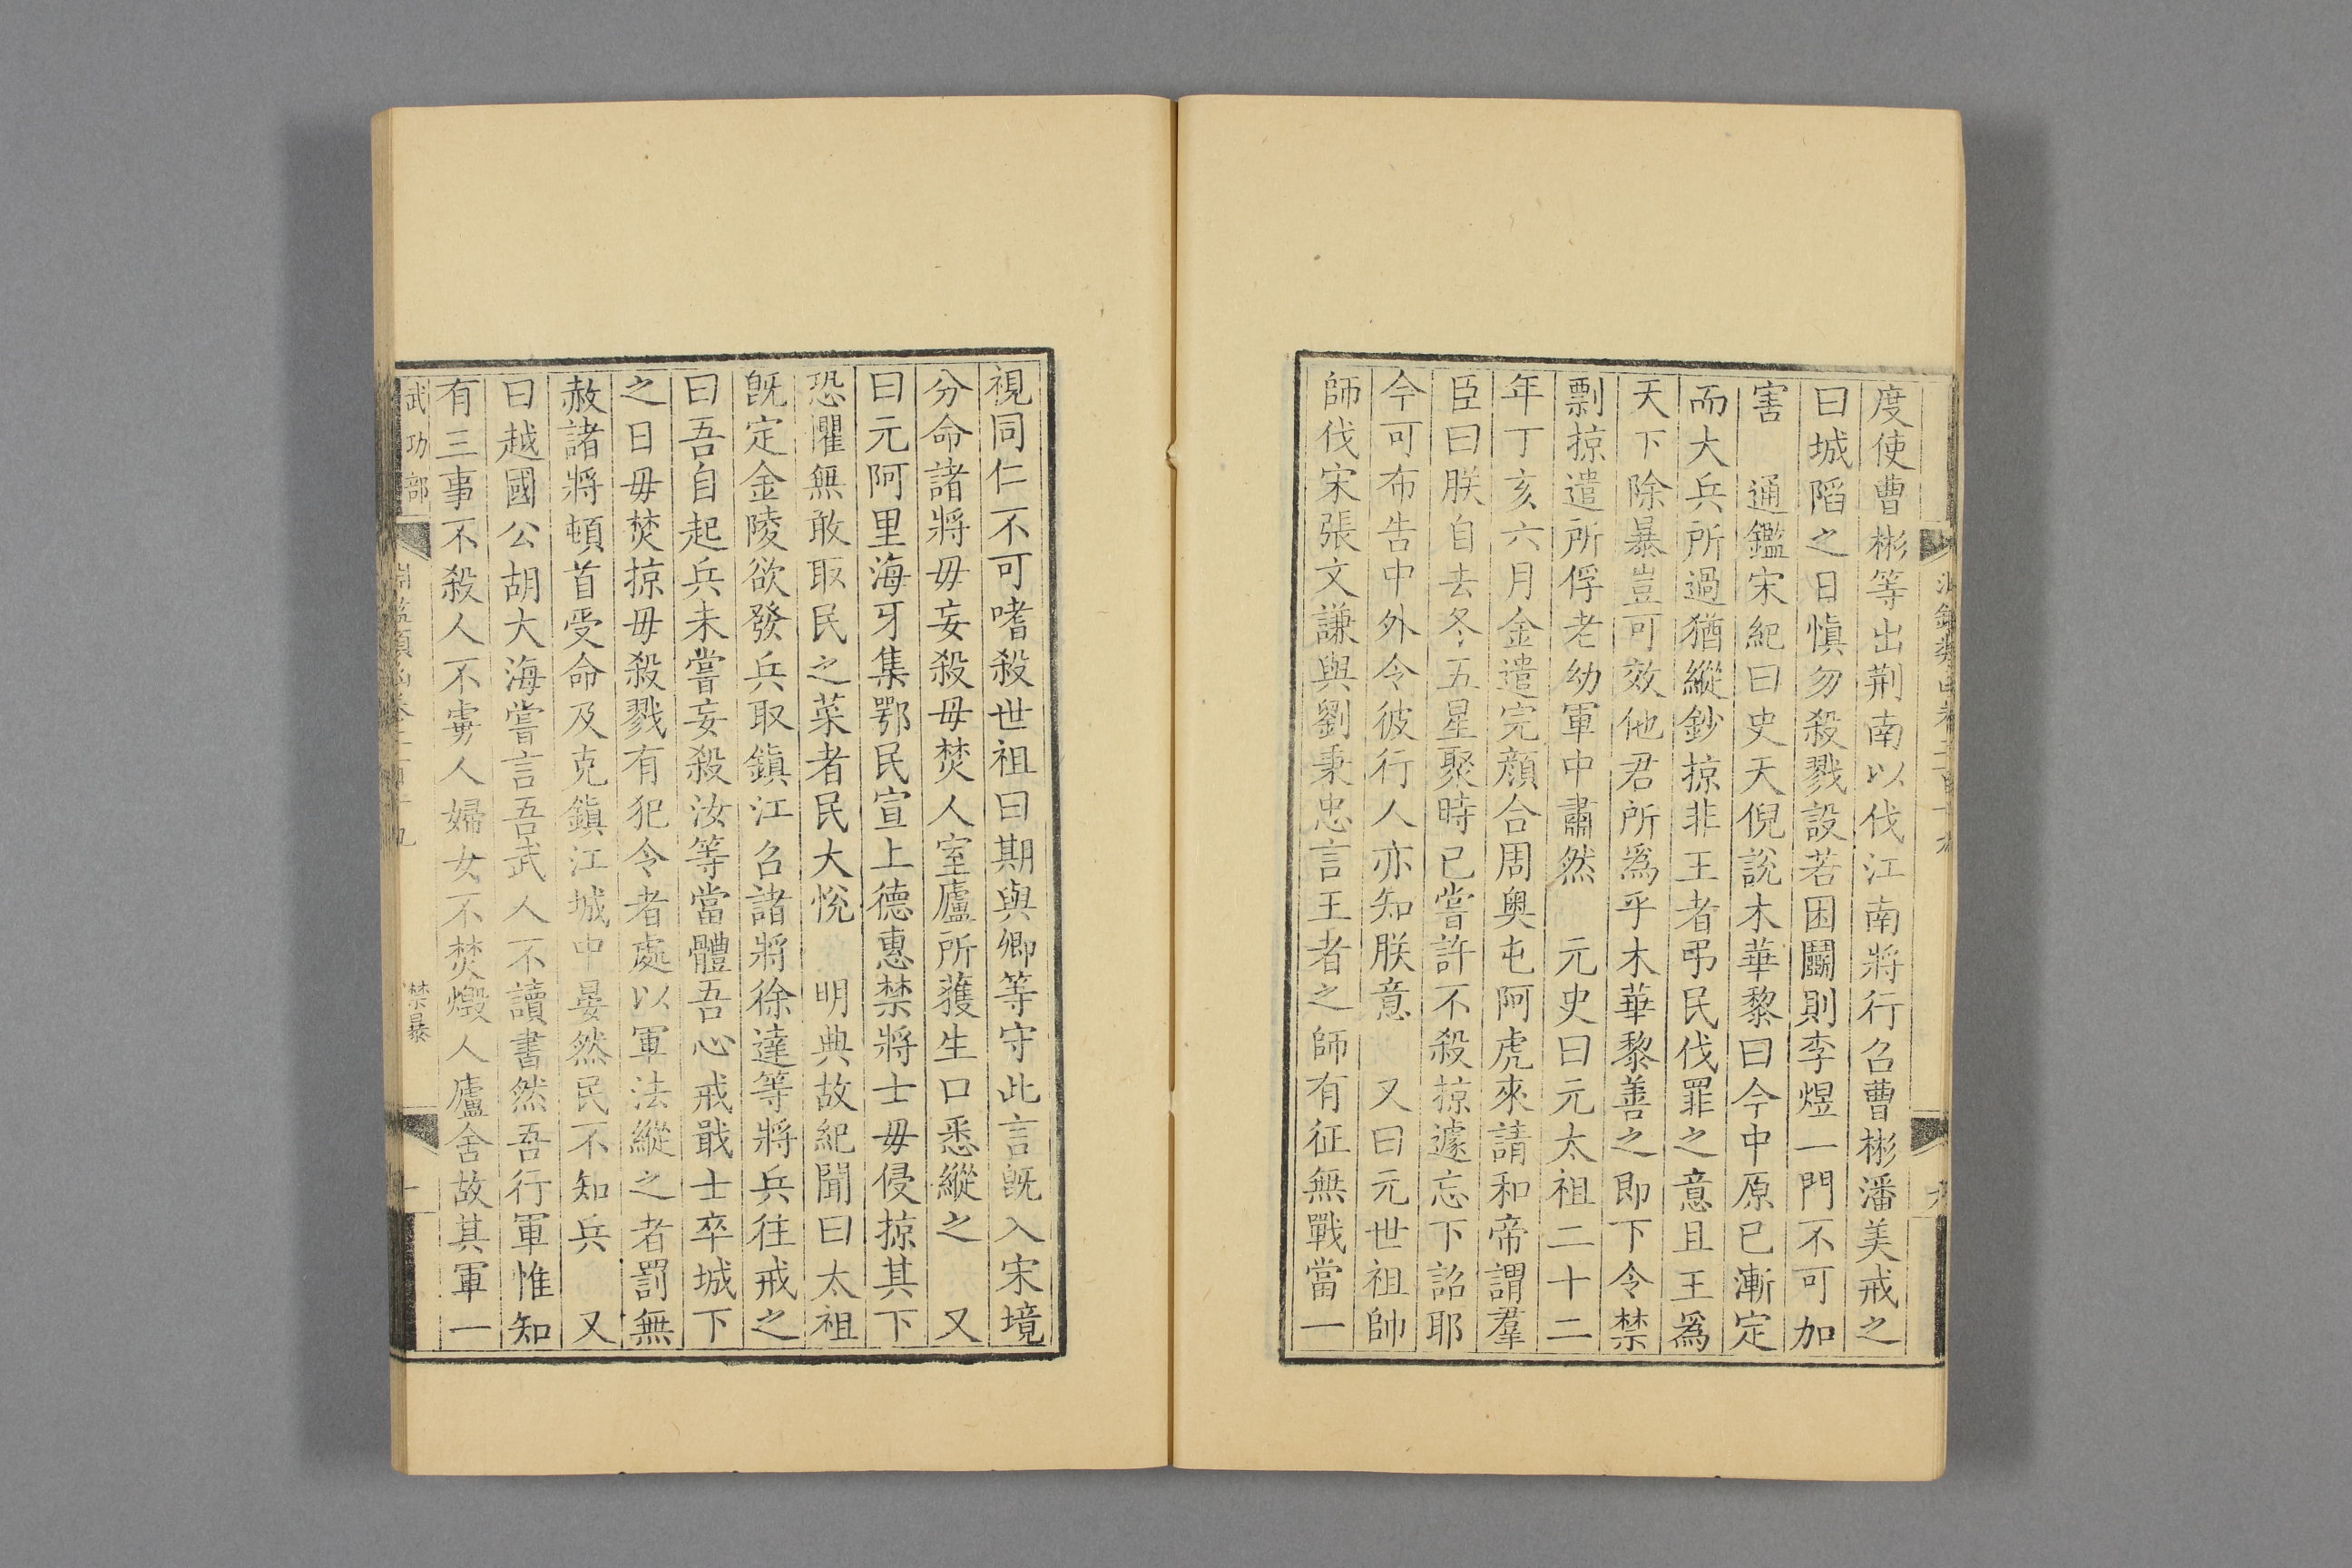 度使曹彬等出荆南以伐江南將行召曹彬潘美戒之
曰城䧟之日慎勿殺戮設若困鬬則李煜一門不可加
害　通鑑宋紀曰史天倪說木華黎曰今中原已漸定
而大兵所過猶縱鈔掠非王者弔民伐罪之意且王爲
天下除暴豈可效他君所爲乎木華黎善之即下令禁
剽掠遣所俘老幼軍中肅然　元史曰元太祖二十二
年丁亥六月金遣完顔合周奥屯阿虎來請和帝謂羣
臣曰朕自去冬五星聚時已嘗許不殺掠遽忘下詔耶
今可布告中外令彼行人亦知朕意　又曰元世祖帥
師伐宋張文謙與劉秉忠言王者之師有征無戰當一
視同仁不可嗜殺世祖曰期與卿等守此言旣入宋境
分命諸將毋妄殺毋焚人室廬所獲生口悉縱之　又
曰元阿里海牙集鄂民宣上德惠禁將士毋侵掠其下
恐懼無敢取民之菜者民大悅　明典故紀聞曰太祖
旣定金陵欲發兵取鎭江召諸將徐達等將兵往戒之
曰吾自起兵未嘗妄殺汝等當體吾心戒戢士卒城下
之日毋焚掠毋殺戮有犯令者處以軍法縱之者罰無
赦諸將頓首受命及克鎭江城中晏然民不知兵　又
曰越國公胡大海嘗言吾武人不讀書然吾行軍惟知
有三事不殺人不虜人婦女不焚燬人廬舍故其軍一
武功部
禁暴